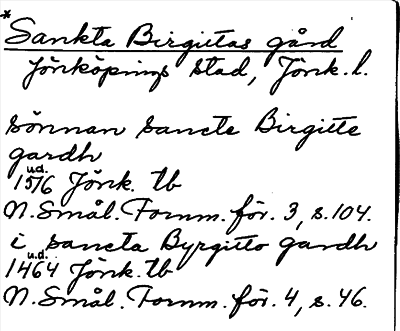 * Sankta Birgittas gård
Jönköpings stad, Jönk. l.
sönnan sancte Birgitte
gardh
u.d.
1516 Jönk. tb
N. Smål. Fornm. för. 3, s. 104.
i sancta Byrgitto gardh
u.d.
1464 Jönk. tb
N. Smål. Fornm. för. 4, s. 46.